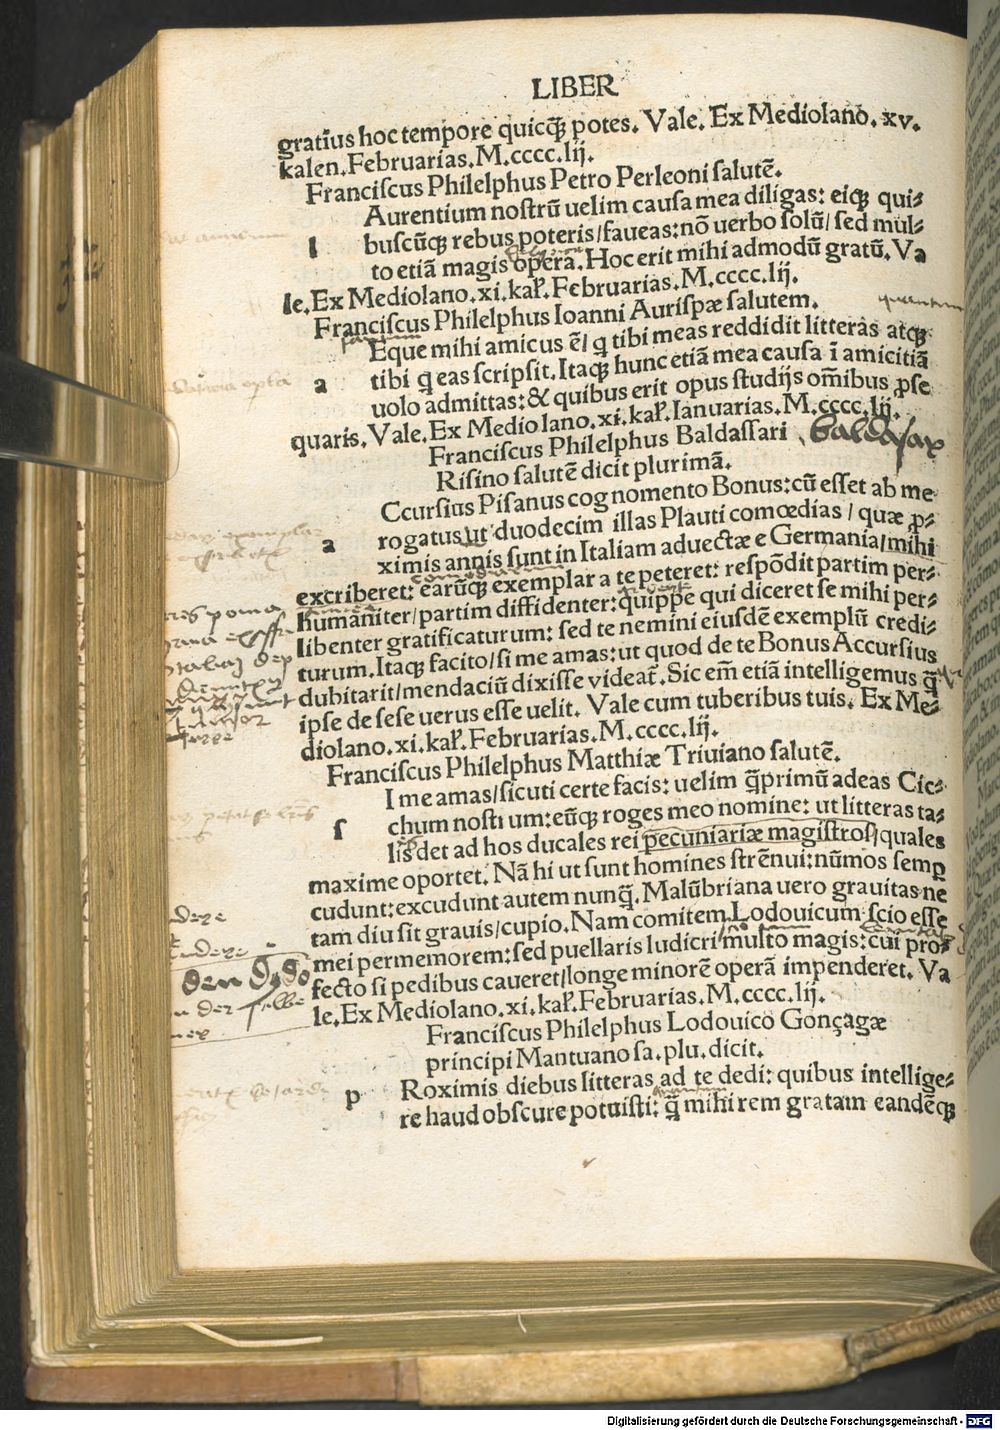 LIBER
gratius hoc tempore quicq̃ꝫ potes. Vale. Ex Mediolano. xv.
kalen. Februarias. M.cccc.lij.
Franciſcus Philelphus Petro Perleoni ſalutē.
l Aurentium noſtrū uelim cauſa mea diligas: eiqꝫ qui-
buſcūqꝫ rebus poteris/faueas: nō uerbo ſolū/ ſed mul-
to etiā magis opera. Hoc erit mihi admodū gratū. Va
le. Ex Mediolano. xi. kal̃. Februarias. M.cccc.lij.
Franciſcus Philelphus Ioanni Auriſpæ ſalutem.
a Eque mihi amicus ē/ q tibi meas reddidit litteras atqꝫ
tibi q eas ſcripſit. Itaqꝫ hunc etiā mea cauſa ī amicitiā
uolo admittas: & quibus erit opus ſtudijs om̄ibus ꝓſe
quaris. Vale. Ex Mediolano. xi. kal̃. Ianuarias. M.cccc.lij.
Franciſcus Philelphus Baldaſſari baldaſar
Riſino ſalutē dicit plurimā.
a Ccurſius Piſanus cognomento Bonus: cū eſſet ab me
rogatus ut duodecim illas Plauti comœdias / quæ ꝓ-
ximis annis ſunt in Italiam aduectæ e Germania/mihi
excriberet: earūqꝫ exemplar a te peteret: reſpōdit partim per-
humaniter/partim diffidenter: quippe qui diceret ſe mihi per-
libenter gratificaturum: ſed te nemini eiuſdē exemplū credi-
turum. Itaqꝫ facito/ſi me amas: ut quod de te Bonus Accurſius
dubitarit/mendaciū dixiſſe videat̃. Sic em̄ etiā intelligemus q̃
ipſe de ſeſe uerus eſſe uelit. Vale cum tuberibus tuis. Ex Me-
diolano. xi. kal̃. Februarias. M.cccc.lij.
Franciſcus Philelphus Matthiæ Triuiano ſalutē.
ſ I me amas/ſicuti certe facis: uelim q̃primū adeas Cic-
chum noſtrum: eūqꝫ roges meo nomine: ut litteras ta-
lis det ad hos ducales rei pecuniariæ magiſtros/quales
maxime oportet. Nā hi ut ſunt homines ſtrēnui: nūmos ſemꝑ
cudunt: excudunt autem nunq̃. Malūbriana uero grauitas ne
tam diu ſit grauis/cupio. Nam comitem Lodouicum ſcio eſſe
mei permemorem: ſed puellaris ludicri multo magis: cui pro-
fecto ſi pedibus caueret/longe minorē operā impenderet. Va
le. Ex Mediolano. xi. kal̃. Februarias. M.cccc.lij.
Franciſcus Philelphus Lodouico Gonçagæ
principi Mantuano ſa. plu. dicit.
p Roximis diebus litteras ad te dedi: quibus intellige-
re haud obſcure potuiſti: q̃ mihi rem gratam eandēqꝫ
Digitalisierung gefördert durch die Deutsche Forschungsgemeinschaft - DFG